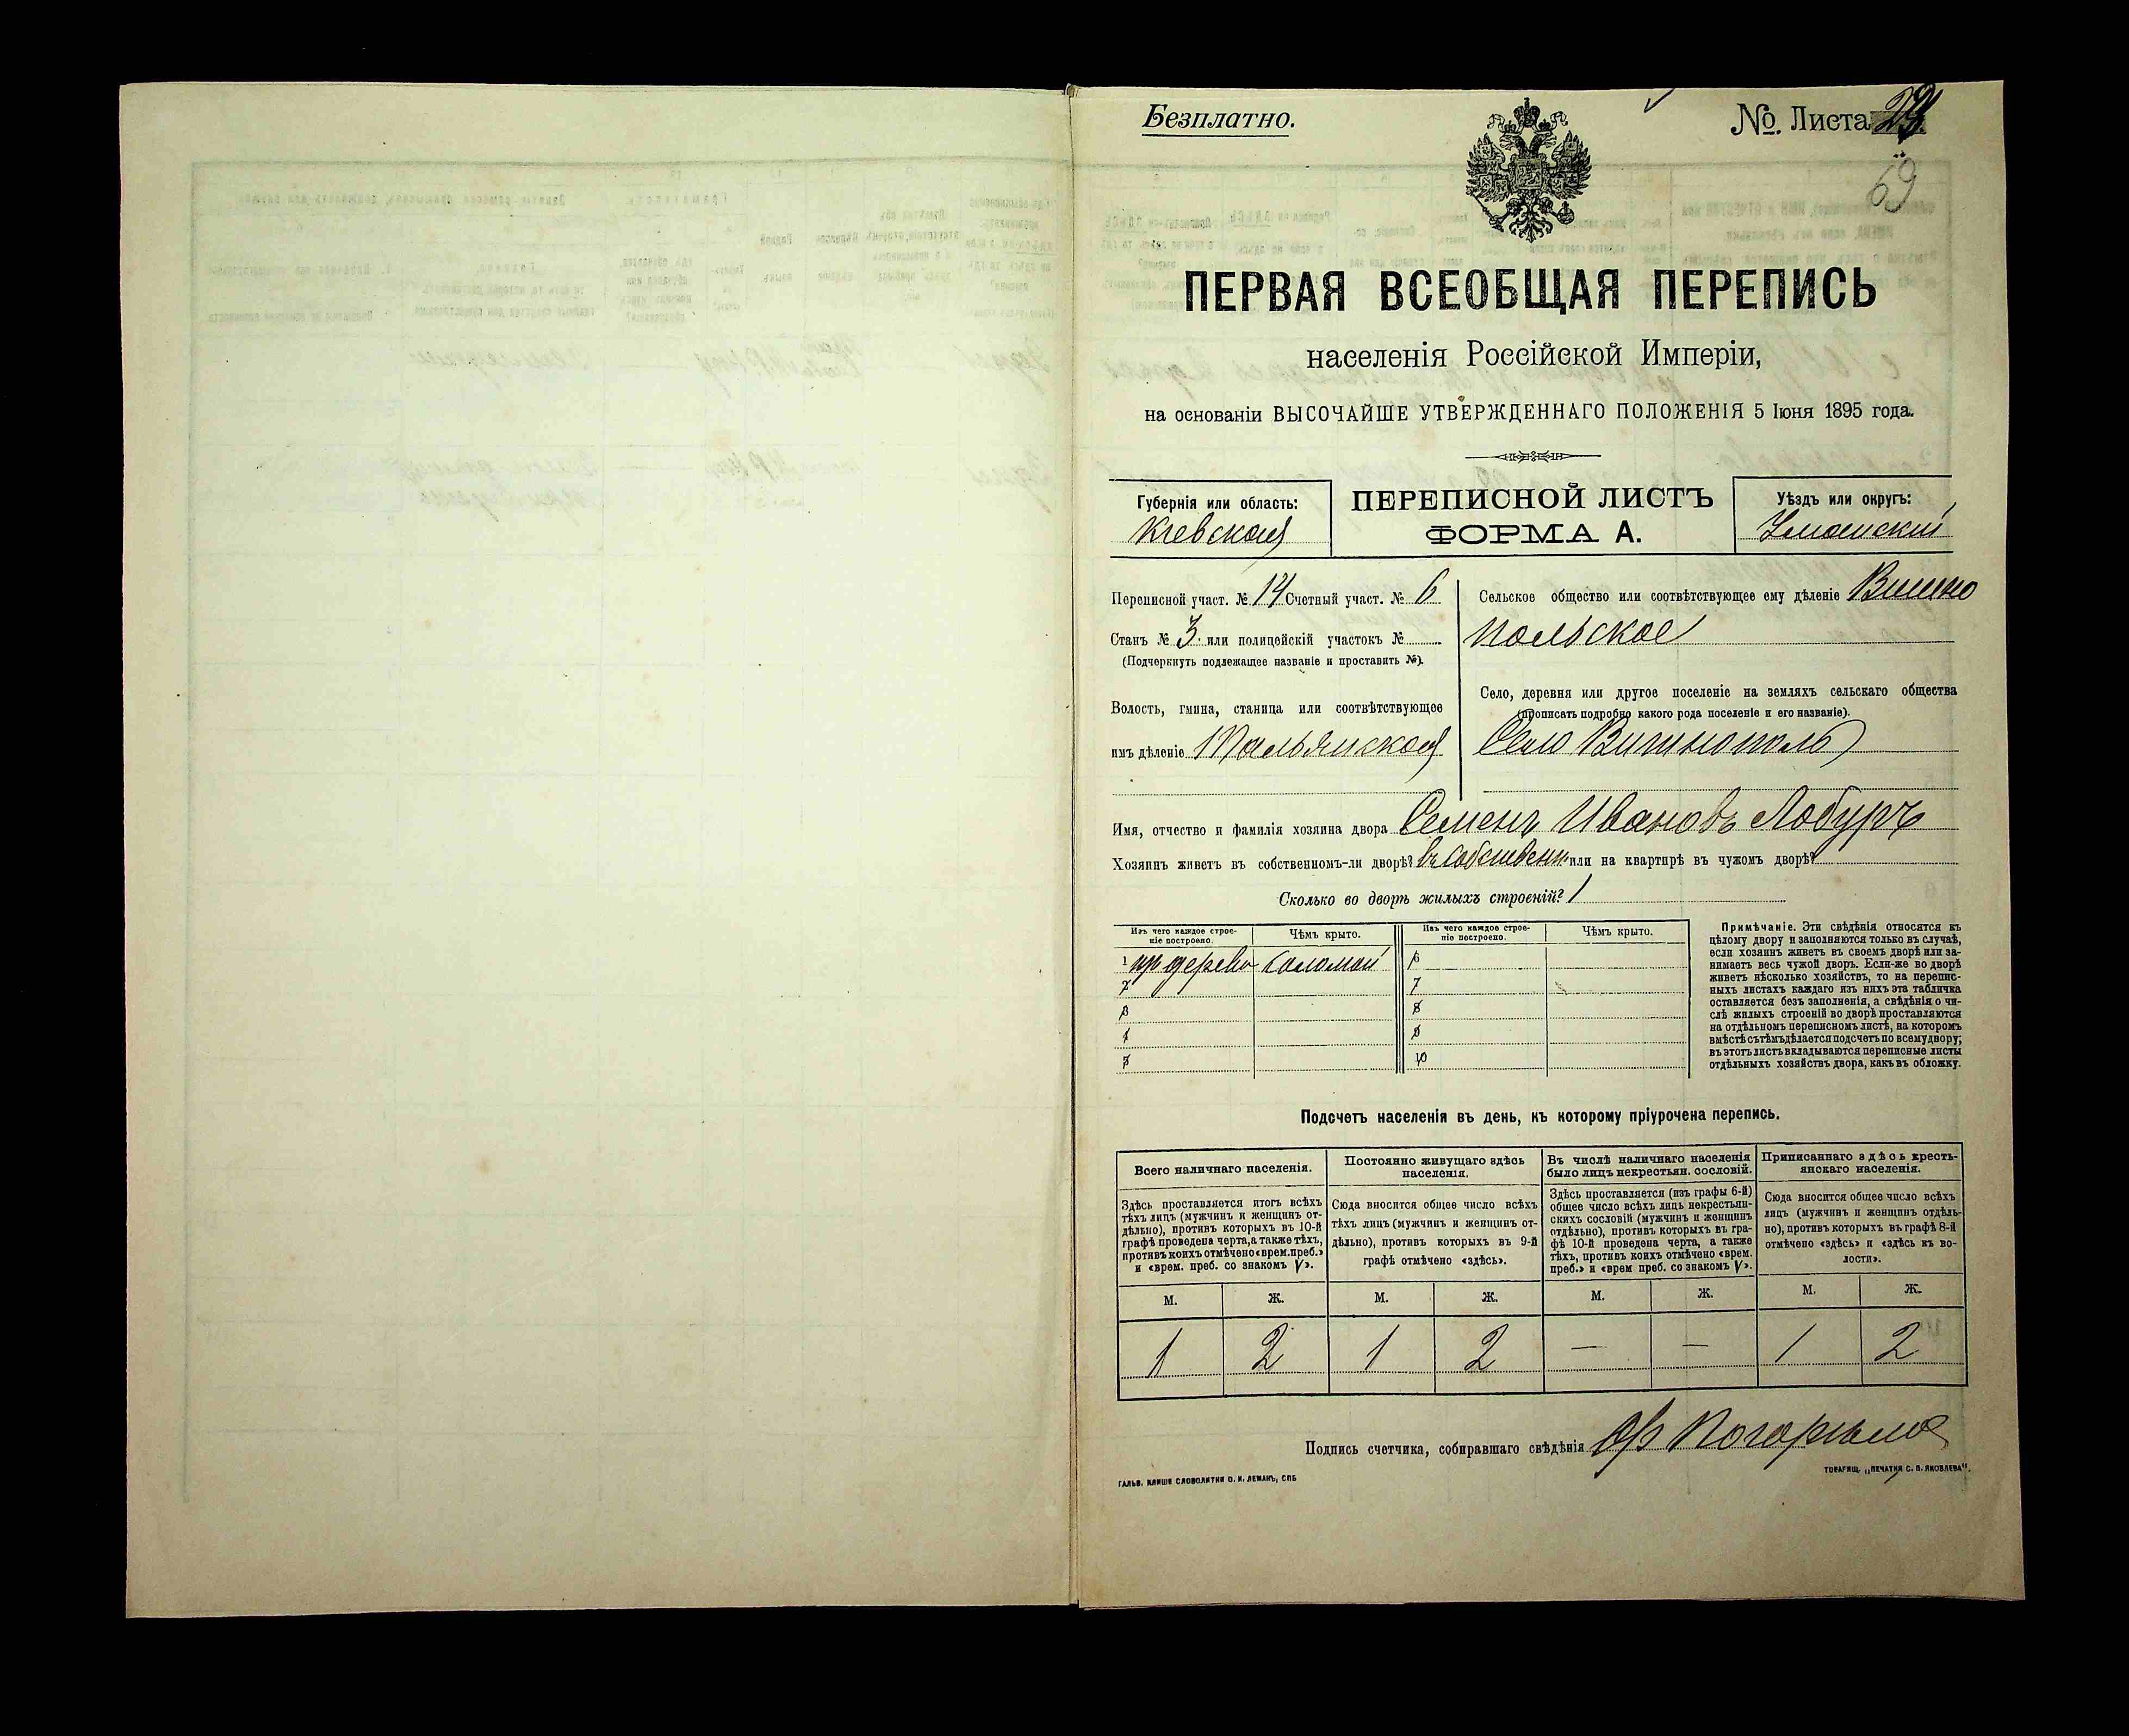 Безплатно.
№. Листа
69
ПЕРВАЯ ВСЕОБЩАЯ ПЕРЕПИСЬ
населенія Россійской Имперіи,
на основаніи ВЫСОЧАЙШЕ УТВЕРЖДЕННАГО ПОЛОЖЕНІЯ 5 Іюня 1895 года.
Губернія или область:
Кіевская
ПЕРЕПИСНОЙ ЛИСТЪ
ФОРМА А.
Уѣздъ или округъ:
Уманскій
Переписной участ. № 14 Счетный участ. № 6
Станъ № 3 или полицейскій участокъ №
(Подчеркнуть подлежащее названіе и проставить №).
Волость, гмина, станица или соотвѣтствующее
имъ дѣленіе Тальянская
Сельское общество или соотвѣтствующее ему дѣленіе Вишно
польское
Село, деревня или другое поселеніе на земляхъ сельскаго общества
(прописать подробно какого рода поселеніе и его названіе).
Село Вишнополь
Имя, отчество и фамилія хозяина двора Семенъ Ивановъ Лобуръ
Хозяинъ живетъ въ собственномъ-ли дворѣ? въ собственн. или на квартирѣ въ чужомъ дворѣ?
Сколько во дворѣ жилыхъ строеній? 1
Изъ чего каждое строе-
ніе построено.
Чѣмъ крыто.
Изъ чего каждое строе-
ніе построено.
Чѣмъ крыто.
1 дерева соломой
2
3
4
5
6
7
8
9
10
Примѣчаніе. Эти свѣдѣнія относятся къ
цѣлому двору и заполняются только въ случаѣ,
если хозяинъ живетъ въ своемъ дворѣ или за-
нимаетъ весь чужой дворъ. Если-же во дворѣ
живетъ нѣсколько хозяйствъ, то на перепис-
ныхъ листахъ каждаго изъ нихъ эта табличка
оставляется безъ заполненія, а свѣдѣнія о чи-
слѣ жилыхъ строеній во дворѣ проставляются
на отдѣльномъ переписномъ листѣ, на которомъ
вмѣстѣ съ тѣмъ дѣлается подсчетъ по всему двору;
въ этотъ листъ вкладываются переписные листы
отдѣльныхъ хозяйствъ двора, какъ въ обложку.
Подсчетъ населенія въ день, къ которому пріурочена перепись.
Всего наличнаго населенія.
Здѣсь проставляется итогъ всѣхъ
тѣхъ лицъ (мужчинъ и женщинъ от-
дѣльно), противъ которыхъ въ 10-й
графѣ проведена черта, а также тѣхъ,
противъ коихъ отмѣчено «врем. преб.»
и «врем. преб. со знакомъ V».
Постоянно живущаго здѣсь
населенія.
Сюда вносится общее число всѣхъ
тѣхъ лицъ (мужчинъ и женщинъ от-
дѣльно), противъ которыхъ въ 9-й
графѣ отмѣчено «здѣсь».
Въ числѣ наличнаго населенія
было лицъ некрестьян. сословій.
Здѣсь проставляется (изъ графы 6-й)
общее число всѣхъ лицъ некрестьян-
скихъ сословій (мужчинъ и женщинъ
отдѣльно), противъ которыхъ въ гра-
фѣ 10-й проведена черта, а также
тѣхъ, противъ коихъ отмѣчено «врем.
преб.» и «врем преб. со знакомъ V».
Приписаннаго здѣсь кресть-
янскаго населенія.
Сюда вносится общее число всѣхъ
лицъ (мужчинъ и женщинъ отдѣль-
но), противъ которыхъ въ графѣ 8-й
отмѣчено «здѣсь» и «здѣсь къ во-
лости».
М. Ж. М. Ж. М. Ж. М. Ж.
1 2 1 2 — — 1 2
Подпись счетчика, собиравшаго свѣдѣнія
ГАЛЬВ. КЛИШЕ СЛОВОЛИТНИ О. И. ЛЕМАНЪ, СПБ
ТОВАРИЩ. „ПЕЧАТНЯ С. П. ЯКОВЛЕВА".